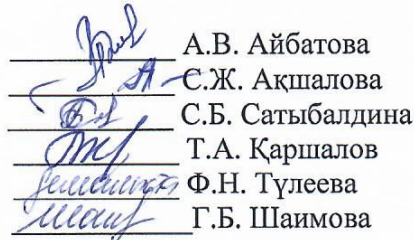 А.В. Айбатова
С.Ж. Ақшалова
С.Б. Сатыбалдина
Т.А. Қаршалов
Ф.Н. Түлеева
Г.Б. Шаимова